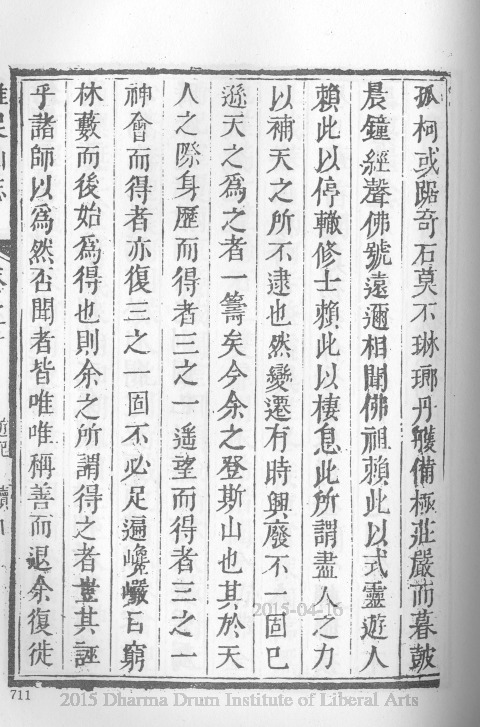 孤柯或踞奇石莫不琳瑯丹雘備極莊嚴而暮皷
晨鐘經聲佛號遠邇相聞佛祖賴此以式靈遊人
賴此以停轍修士賴此以棲息此所謂盡人之力
以補天之所不逮也然變遷有時興廢不一固已
遜天之爲之者一籌矣今余之登斯山也其於天
人之際身歷而得者三之一遥望而得者三之一
神會而得者亦復三之一固不必足遍巉巖目窮
林藪而後始爲得也則余之所謂得之者豈其誣
乎諸師以爲然否聞者皆唯唯稱善而退余復徙
711
2015-04-16
2015 Dharma Drum Institute of Liberal Arts